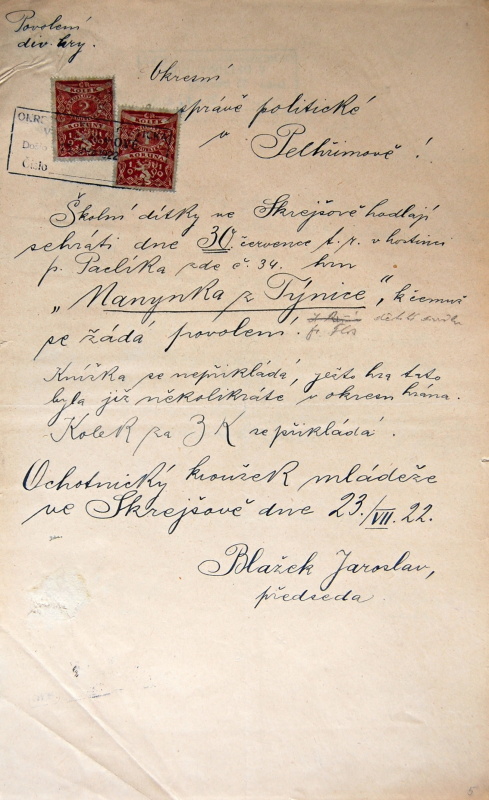 Povolení
div. hry.
Okresní
správě politické
v Pelhřimově!
KOLEK
2
KORUNA
KOLEK
1
KORUNA
1919
Číslo
Školní dítky ve Skrejšově hodlají
sehráti dne 30. července t. r. v hostinci
p. Pavlíka zde č. 34. hru
„Manynka z Týnice“, k čemuž
se žádá povolení.
Knížka se nepřikládá, ježto hra tato
byla již několikráte v okresu hrána.
Kolek za 3 K se přikládá.
Ochotnický kroužek mládeže
ve Skrejšově dne 23./VII. 22.
Blažek Jaroslav,
předseda.
5